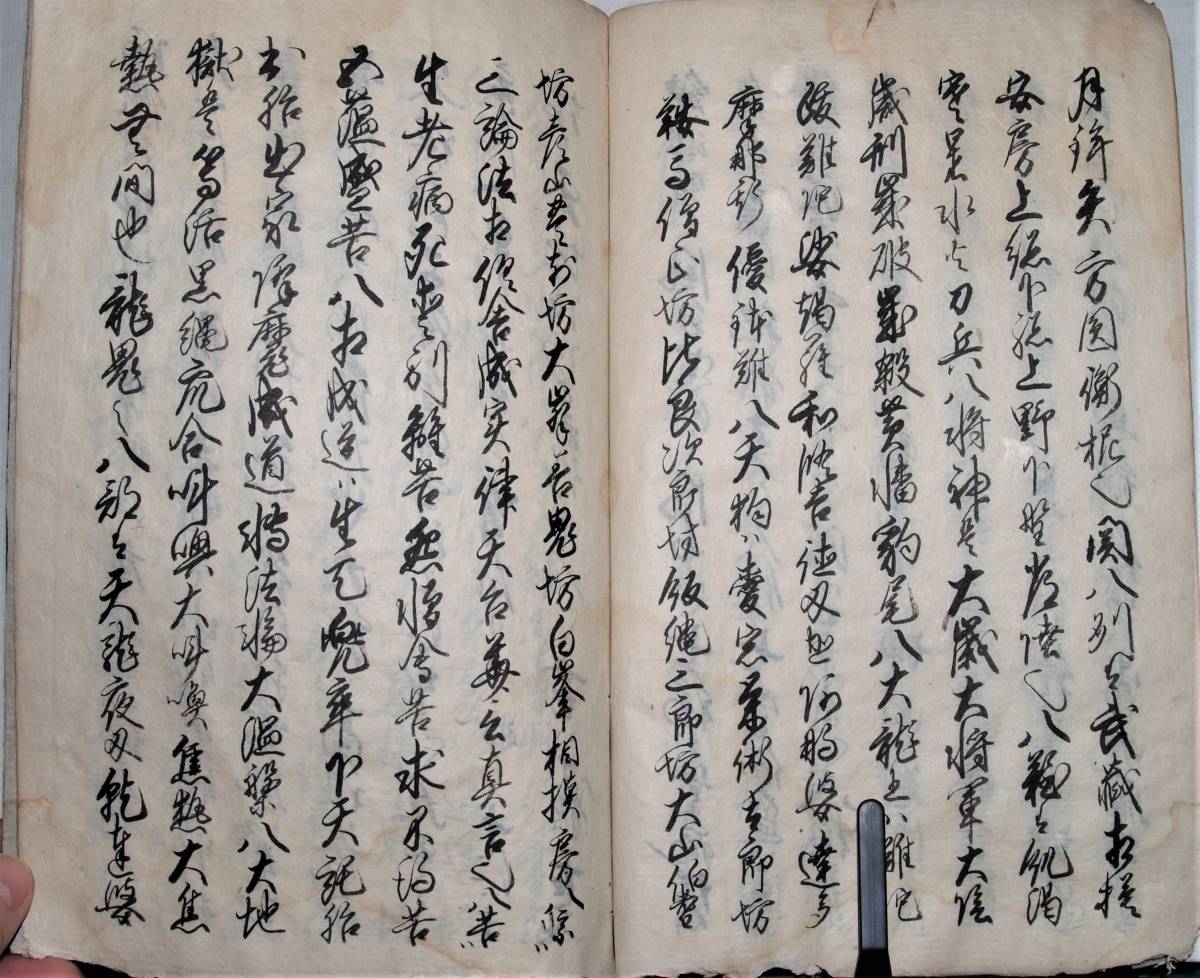 月鉾矣方圓衡柅也関八列公武蔵相模
安房上総下総上野下野常陸也八難公飢渇
寒暑水火刀兵八将神者大歳大将軍大陰
歳刑歳破歳殺黄幡豹尾八大龍王ハ難陀
跋難陀娑竭羅和脩吉徳叉迦阿那婆達多
摩那斯優鉢羅八天狗ハ愛宕栄術太郎坊
鞍馬僧正坊比良次郎坊飯縄三郎坊大山伯耆
坊彦山豊前坊大峯善鬼坊白峯相模房八宗
三論法相倶舎成実律天台華厳真言也八苦ハ
生老病死愛別離苦怨憎会苦求不得苦
五蘊盛苦八相成道ハ生天兜率下天託胎
出胎出家降魔成道転法輪大涅槃八大地
獄者等活黒縄衆合叫喚大叫喚焦熱大焦
熱無間也龍鬼之八部公天龍夜叉乾達婆